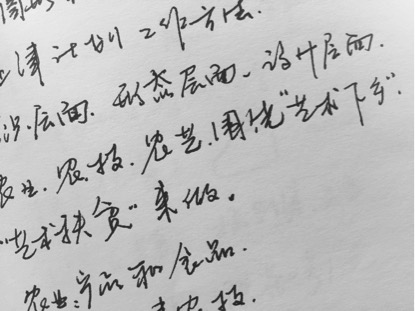 津计划工作方法.
识层面.形态层面、设计层面.
农业.农技.农艺.围绕"艺术下乡".
"艺术扶贫"来做。
农业:产品和食品.
农技.